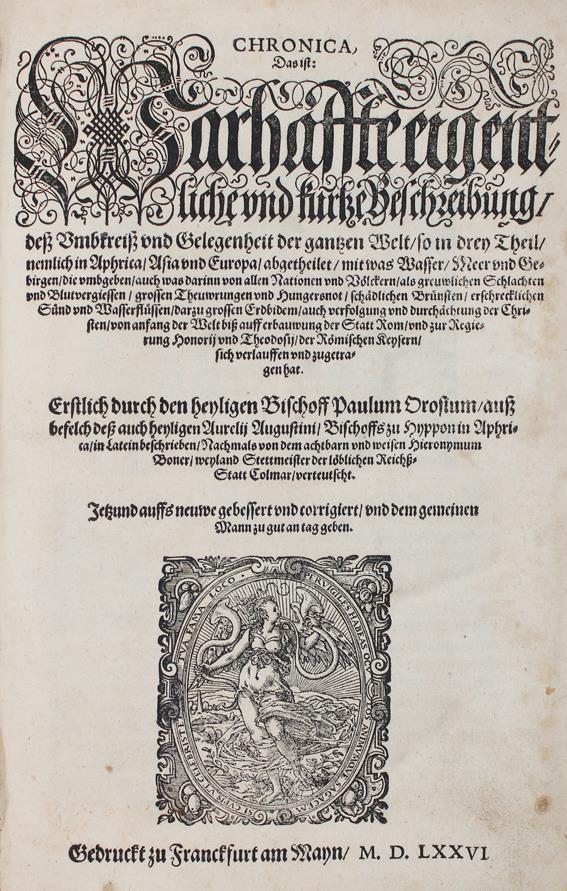 CHRONICA,
Das ist:
Warhaffte eigent-
liche vnd kurtze Beschreibung/
deß Vmbkreiß vnd Gelegenheit der gantzen Welt/so in drey Theil/
nemlich in Aphrica/Asia vnd Europa/abgetheilet/mit was Wasser/Meer vnd Ge-
birgen/die vmbgeben/auch was darinn von allen Nationen vnd Völckern/als greuwlichen Schlachten
vnd Blutvergiessen/grossen Theuwrungen vnd Hungersnot/schädlichen Brünsten/erschrecklichen
Sünd vnd Wasserflüssen/darzu grossen Erdbidem/auch verfolgung vnd durchächtung der Chri-
sten/von anfang der Welt biß auff erbauwung der Statt Rom/vnd zur Regie-
rung Honorij vnd Theodosij/der Römischen Keysern/
sich verlauffen vnd zugetra-
gen hat.
Erstlich durch den heyligen Bischoff Paulum Orosium/auß
befelch deß auch heyligen Aurelij Augustini/Bischoffs zu Hyppon in Aphri-
ca/in Latein beschrieben/Nachmals von dem achtbarn vnd weisen Hieronymum
Boner/weyland Stettmeister der löblichen Reichß-
Statt Colmar/verteutscht.
Jetzund auffs neuwe gebessert vnd corrigiert/vnd dem gemeinen
Mann zu gut an tag geben.
PERVIGILES HABEAS OCVLOS ANIMVMQVE SAGACEM SI CVPIS VT CELEBRI STET TVA FAMA LOCO.
Gedruckt zu Franckfurt am Mayn/ M. D. LXXVI